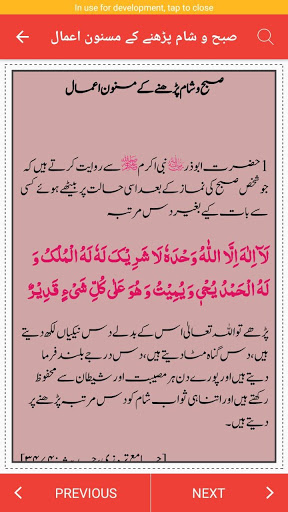 In use for development, tap to close
صبح و شام پڑھنے کے مسنون اعمال
صبح و شام پڑھنے کے مسنون اعمال
1 حضرت ابوذر نبی اکرم ﷺ سے روایت کرتے ہیں کہ
جو شخص صبح کی نماز کے بعد اسی حالت پر بیٹھے ہوئے کسی
سے بات کیے بغیر دس مرتبہ
لَآ اِلٰهَ اِلَّا اللّٰهُ وَحْدَهٗ لَا شَرِيْكَ لَهٗ لَهُ الْمُلْكُ وَ
لَهُ الْحَمْدُ يُحْيِيْ وَ يُمِيْتُ وَ هُوَ عَلٰى كُلِّ شَيْءٍ قَدِيْرٌ
پڑھے تو اللہ تعالی اس کے بدلے دس نیکیاں لکھ دیتے
ہیں، دس گناہ مٹا دیتے ہیں، دس درجے بلند فرما
دیتے ہیں اور پورے دن ہر مصیبت اور شیطان سے محفوظ
رکھتے ہیں اور اتنا ہی ثواب شام کو دس مرتبہ پڑھنے پر
دیتے ہیں۔
PREVIOUS
NEXT